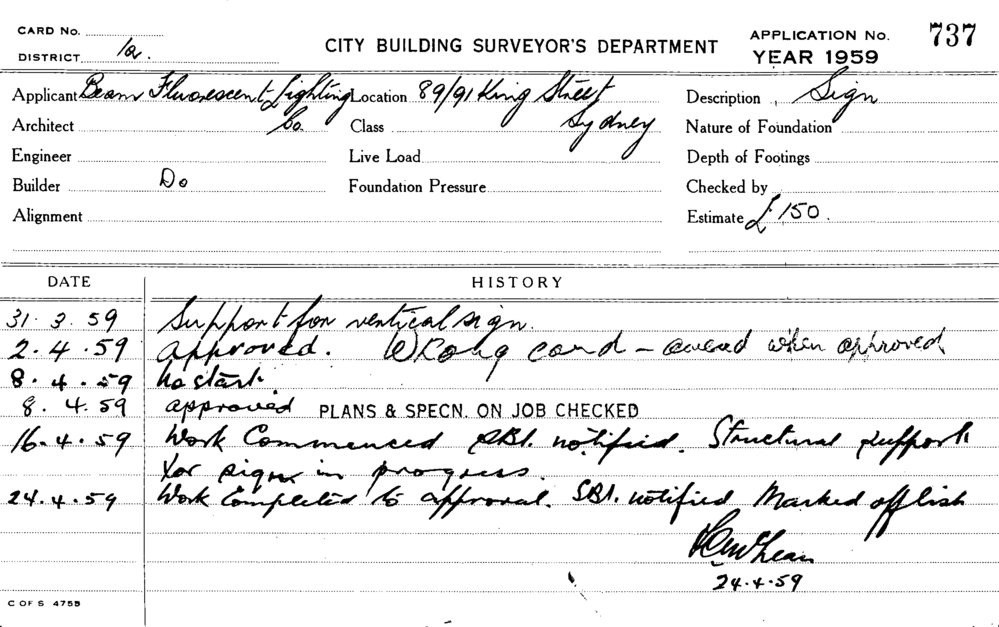 CARD No.
DISTRICT 1a.
CITY BUILDING SURVEYOR'S DEPARTMENT
APPLICATION No. 737
YEAR 1959
Applicant Beam Fluorescent Lighting Co. Location 89/91 King Street Sydney Description Sign
Architect Class Nature of Foundation
Engineer Live Load Depth of Footings
Builder Do Foundation Pressure Checked by
Alignment Estimate £150.
DATE HISTORY
31.3.59 Support for vertical sign.
2.4.59 Approved. Wrong card - when approved
8.4.59 No start.
8.4.59 approved PLANS & SPECN. ON JOB CHECKED
16.4.59 Work Commenced SBI. notified. Structural support
for sign in progress.
24.4.59 Work Completed to approval. SBI. notified Marked off list
24.4.59
C OF S 4755